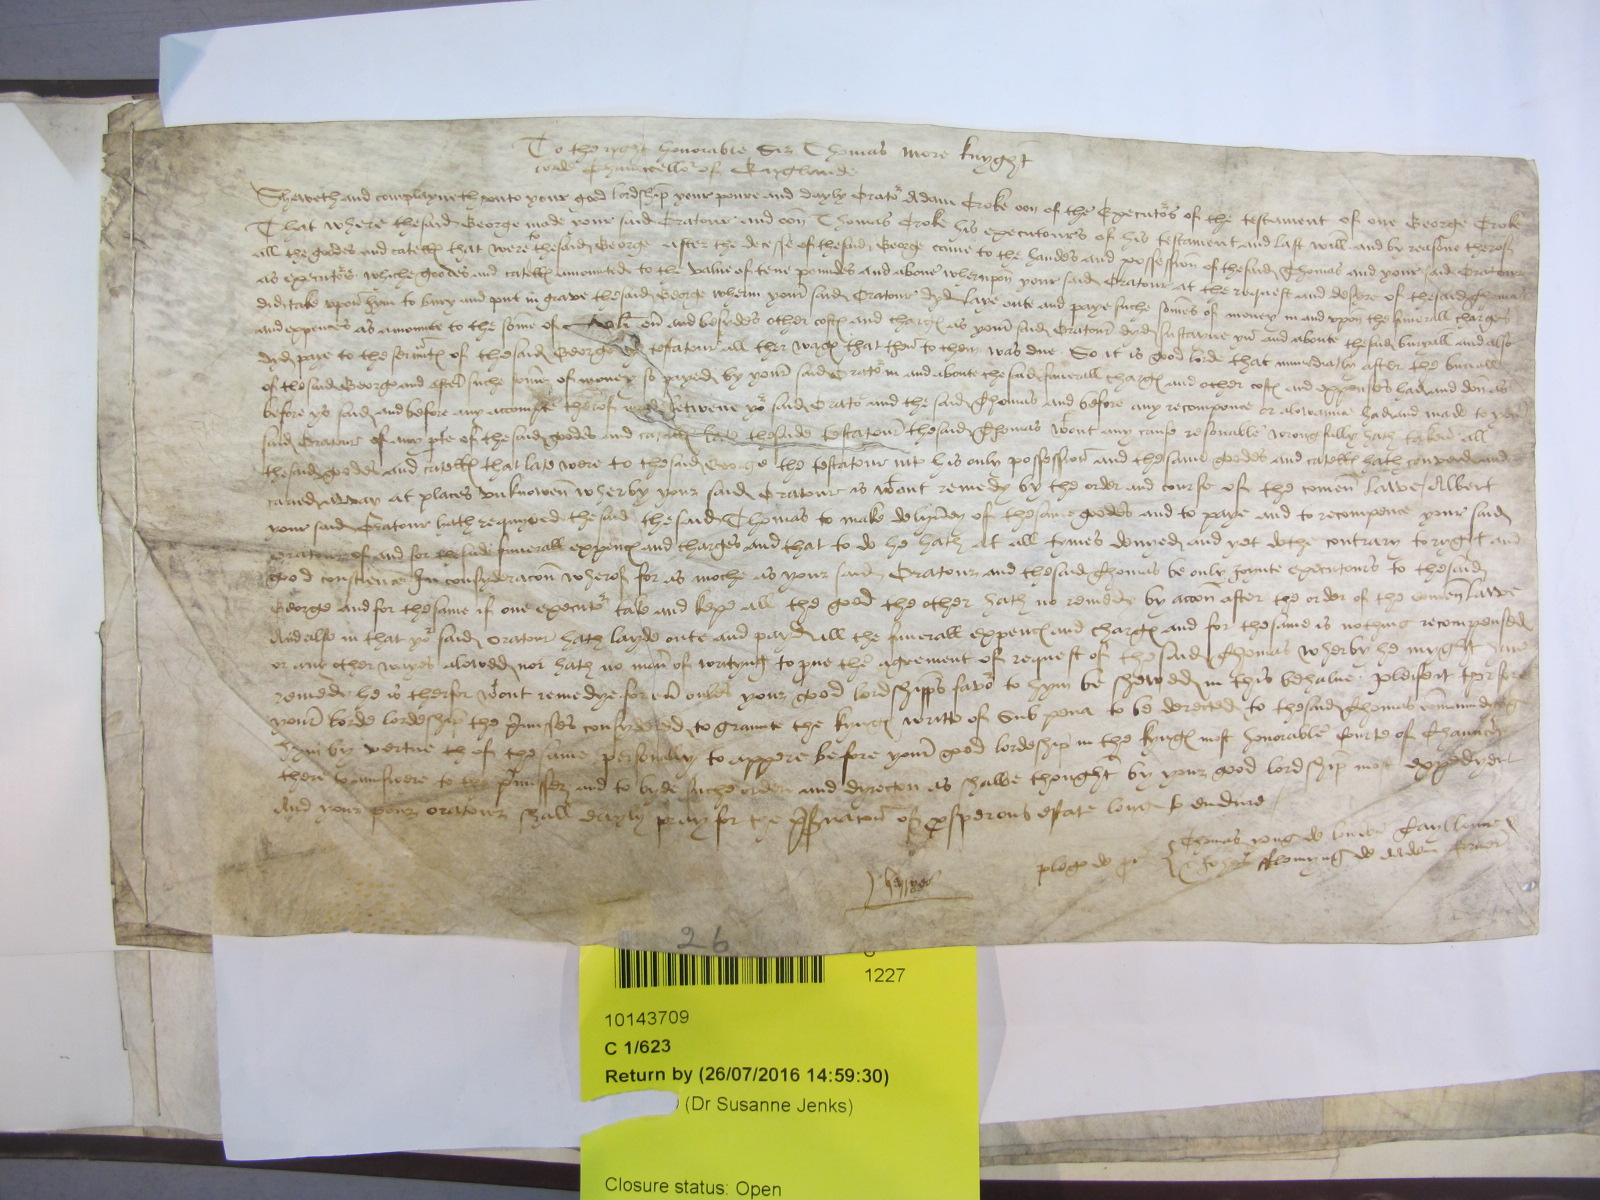 To the ryght honorable Sir Thomas More knyght
lorde Chauncello<sup>r</sup> of Englande
Sheweth and complayneth vnto your good lordship your poure and dayly Orato<sup>r</sup> Adam Croke oon of the Executo<sup>r</sup>s of the testament of one George Croke
That where the said George made your said Oratour and oon Thomas Croke his executours of his testament and last will and by reasone therof
all the goodes and catell that were to the said George after the decesse of the said George came to the handes and possession of the said Thomas and your said Oratour
as executo<sup>r</sup>s whiche goodes and catell amountede to the value of tene poundes and aboue wherupon your said Oratour at the request and desyre of the said Thomas
did take vpon hym to bury and put in grave the said George wherin your said Oratour dyd laye oute and paye suche somes of money in and vpon the funerall charges
and expences as amounte to the some of and besydes other costes and charges as your said Oratour dyd susteyne yn and aboute the said buryall and also
dyd paye to the seruantes of the said George testatour all ther wages that then to them was due So it is good lorde that immediatly after the buriall
of the said George and after suche somes of money so payed by your said Orato<sup>r</sup> in and aboute the said funerall charges and other costes and expenses had and don as
before ys said and before any accompte therof made betwene yo<sup>r</sup> said Orato<sup>r</sup> and the said Thomas and before any recompence or alowaunce had and made to your
said Oratour of any parte of the said godes and catell late the saide testatour the said Thomas without any cause resonable wrongfully hath taken all
the said goodes and catell that late were to the said George the testatour into his only possession and the same goodes and catell hath conveyed and
caried away at places vnknowen wherby your said Oratour is without remedy by the order and course of the comen lawe Albeit
your said Oratour hath requyred the said the said Thomas to make delyuery of the same goodes and to paye and to recompence your said
oratour of and for the saide funerall expences and charges and that to do he hath at all tymes denyed and yet dothe contrary to ryght and
good conscience In consyderacon wherof for as moche as your said Oratour and the said Thomas be only joynte executours to the said
George and for the same if one executo<sup>r</sup> take and kepe all the good the other hath no remedy by accon after the order of the comen lawe
And also in that yo<sup>r</sup> said oratour hath layde oute and payd all the funerall expences and charges and for the same is nothing recompensed
or any other wayes alowed nor hath no maner of wrytyng to prove the agrement of request of the said Thomas wherby he myght have
remedy he is therfor without remedye for euer onles your good lordshipps favo<sup>r</sup> to hym be shewed in this behalue Pleasit therfore
your lorde lordeship the premisses consydered to graunte the kynges writte of Sub pena to be derected to the said Thomas commaundyng
hym by vertue therof the same personally to appere before your good lordeship in the kynges most honorable Courte of Chauncery
there to answere to the premisses and to byde suche order and dyrecton as shalbe thought by your good lordship most expedyent
And your pour oratour shall dayly pray for the preseruaton of prosperous estate long to endure
plege de pr Thomas yong de
John Flemyng de
26
1227
10143709
C 1/623
Return by (26/07/2016 14:59:30)
(Dr Susanne Jenks)
Closure status: Open